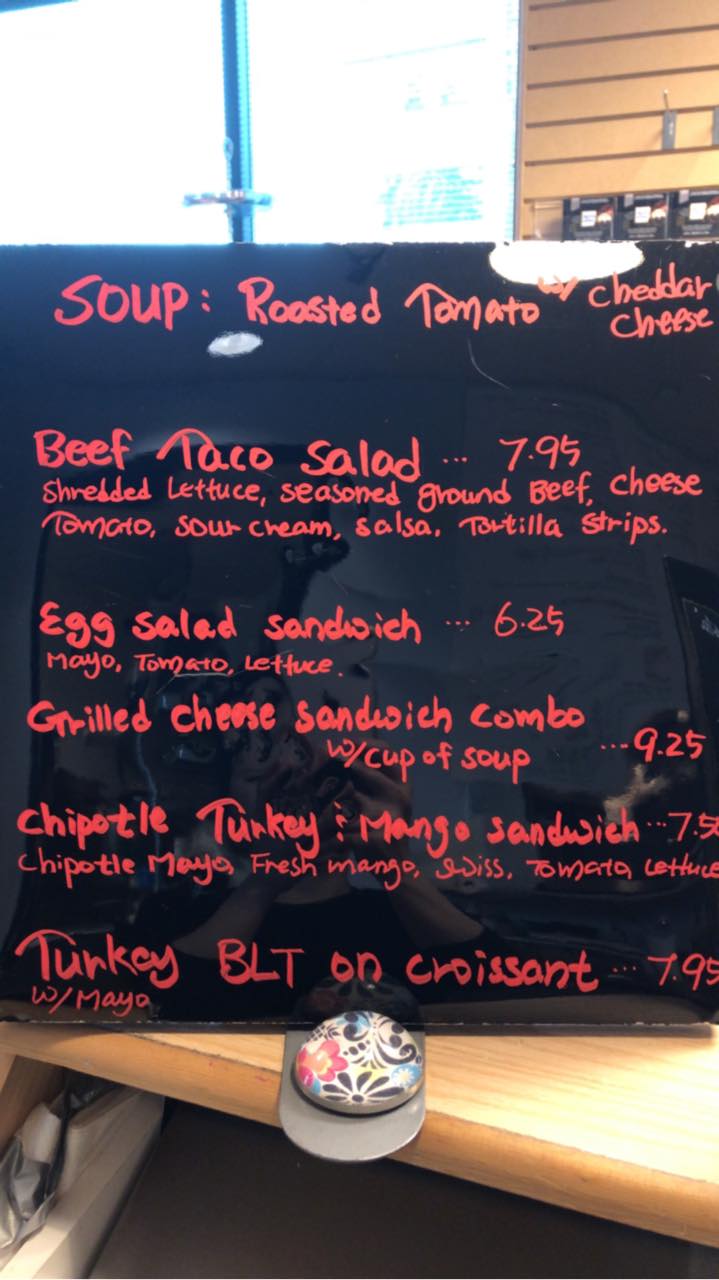 SOUP: Roasted Tomato w/ Cheddar Cheese
Beef Taco Salad ... 7.95
Shredded Lettuce, seasoned ground Beef, Cheese
Tomato, sour cream, salsa, Tortilla Strips.
Egg salad sandwich ... 6.25
Mayo, Tomato, Lettuce.
Grilled cheese sandwich combo
w/cup of soup ...9.25
Chipotle Turkey & Mango sandwich ...7.5
Chipotle Mayo, Fresh mango, Swiss, Tomato, Lettuce
Turkey BLT on croissant ... 7.95
w/Mayo